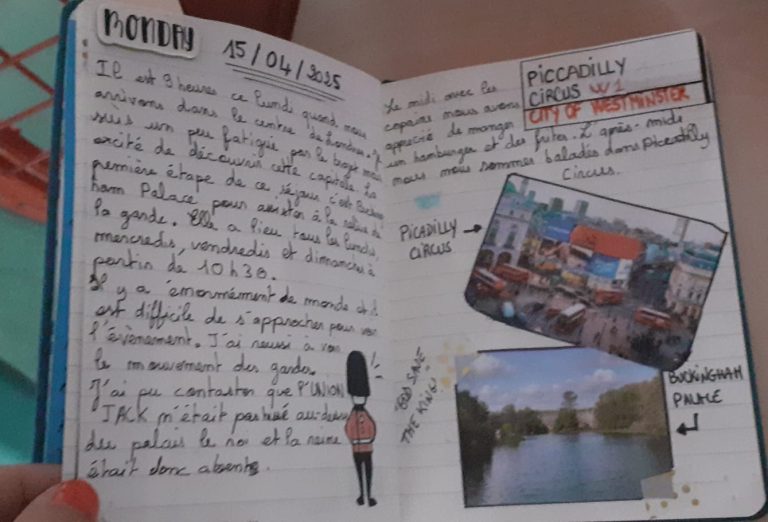 MONDAY
15/04/2025
Il est 9 heures ce lundi quand nous
arrivons dans le centre de Londres. J
suis un peu fatigué par le trajet mais
excité de découvrir cette capitale. La
première étape de ce séjour c'est Bucking
ham Palace pour assister à la relève de
la garde. Elle a lieu tous les lundis,
mercredis, vendredis et dimanches à
partir de 10h30.
Il y a énormément de monde et il
est difficile de s'approcher pour voir
l'évènement. J'ai reussi à voir
le mouvement des gardes.
J'ai pu constater que l'UNION
JACK n'était pas hissé au-dessus
du palais le roi et la reine
était donc absents.
PICCADILLY
CIRCUS W1
CITY OF WESTMINSTER
Le midi avec les
copains nous avons
apprecié de manger
un hamburger et des frites. L'après-midi
nous nous sommes balades dans Piccadilly
Circus.
PICADILLY
CIRCUS
"GOD SAVE
THE KING"
BUCKINGHAM
PALACE